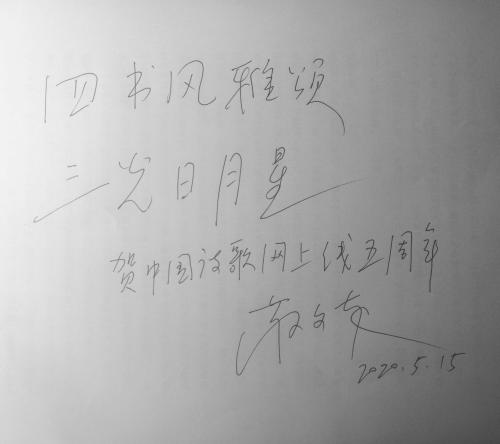 四书风雅颂
三光日月星
贺中国诗歌网上线五周年
2020.5.15